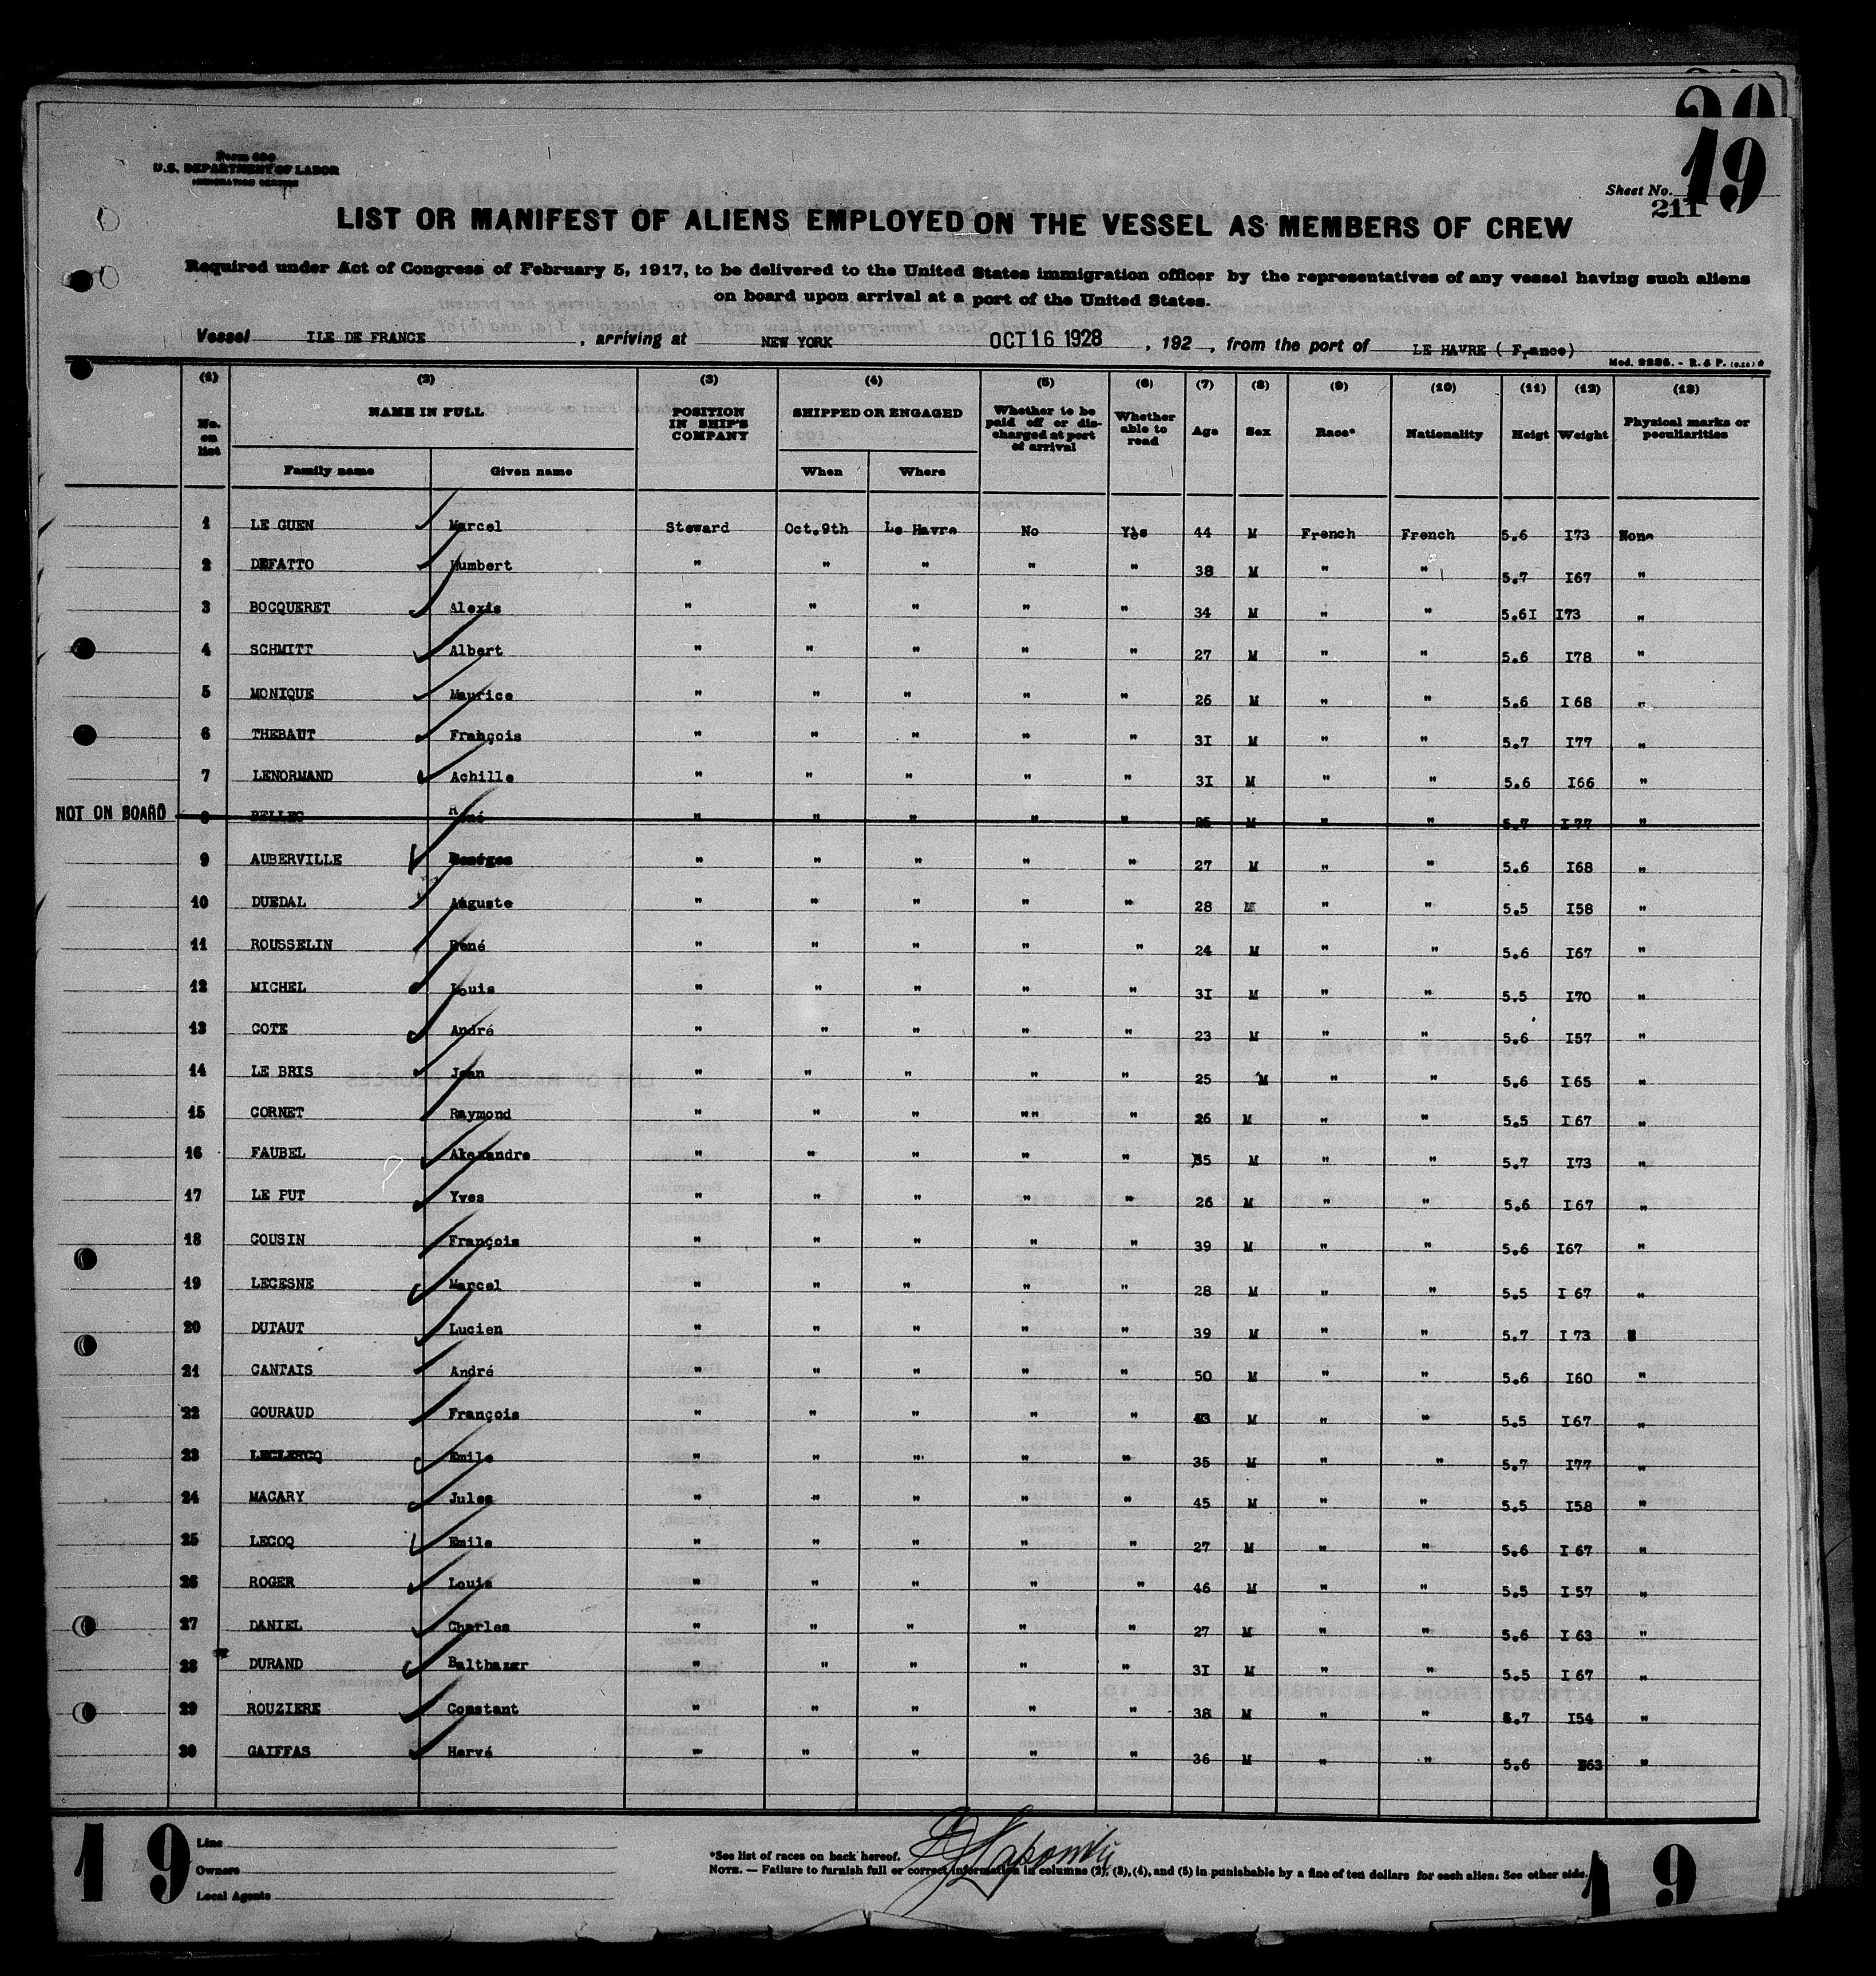 20
19
Form 680
U.S. DEPARTMENT OF LABOR
IMMIGRATION SERVICE
Sheet No.
211
LIST OR MANIFEST OF ALIENS EMPLOYED ON THE VESSEL AS MEMBERS OF CREW
Required under Act of Congress of February 5, 1917, to be delivered to the United States immigration officer by the representatives of any vessel having such aliens
on board upon arrival at a port of the United States.
Vessel ILE DE FRANCE , arriving at NEW YORK OCT 16 1928 , 192 , from the port of LE HAVRE ( France)
Mod. 2286. - R. & P.
(1) (2) (3) (4) (5) (6) (7) (8) (9) (10) (11) (12) (13)
No. on list NAME IN FULL POSITION IN SHIP'S COMPANY SHIPPED OR ENGAGED Whether to be paid off or discharged at port of arrival Whether able to read Age Sex Race* Nationality Heigt Weight Physical marks or peculiarities
Family name Given name When Where
1 LE GUEN Marcel Steward Oct.9th Le Havre No Yes 44 M French French 5.6 I73 None
2 DEFATTO Humbert " " " " " 38 M " " 5.7 I67 "
3 BOCQUERET Alexis " " " " " 34 M " " 5.6I I73 "
4 SCHMITT Albert " " " " " 27 M " " 5.6 I78 "
5 MONIQUE Maurice " " " " " 26 M " " 5.6 I68 "
6 THEBAUT François " " " " " 3I M " " 5.7 I77 "
7 LENORMAND Achille " " " " " 3I M " " 5.6 I66 "
NOT ON BOARD 8 BELLEC René " " " " " M " " 5.7 I77 "
9 AUBERVILLE " " " " " 27 M " " 5.6 I68 "
10 DUEDAL Auguste " " " " " 28 M " " 5.5 I58 "
11 ROUSSELIN René " " " " " 24 M " " 5.6 I67 "
12 MICHEL Louis " " " " " 3I M " " 5.5 I70 "
13 COTE André " " " " " 23 M " " 5.6 I57 "
14 LE BRIS Jean " " " " " 25 M " " 5.6 I65 "
15 CORNET Raymond " " " "" " 26 M " " 5.5 I67 "
16 FAUBEL Akexandre " " " " " 35 M " " 5.7 I73 "
17 LE PUT Yves " " " " " 26 M " " 5.6 I67 "
18 COUSIN François " " " " " 39 M " " 5.6 I67 "
19 LECESNE Marcel " " " " " 28 M " " 5.5 I67 "
20 DUTAUT Lucien " " " " " 39 M " " 5.7 I73
21 CANTAIS André " " " " " 50 M " " 5.6 I60 "
22 GOURAUD François " " " " " 43 M " " 5.5 I67 "
23 LECLERCQ Emile " " " " " 35 M " " 5.7 I77 "
24 MACARY Jules " " " " " 45 M " " 5.5 I58 "
25 LECOQ Emile " " " " " 27 M " " 5.6 I67 "
26 ROGER Louis " " " " " 46 M " " 5.5 I57 "
27 DANIEL Charles " " " " " 27 M " " 5.6 I63 "
28 DURAND Balthazar " " " " " 3I M " " 5.5 I67 "
29 ROUZIERE Constant " " " " " 38 M " " 5.7 I54 "
30 GAIFFAS Hervé " " " " " 36 M " " 5.6 I63 "
19
Line
Owners
Local Agents
*See list of races on back hereof.
NOTE. — Failure to furnish full or correct information in columns (2), (3), (4), and (5) in punishable by a fine of ten dollars for each alien. See other side.
19